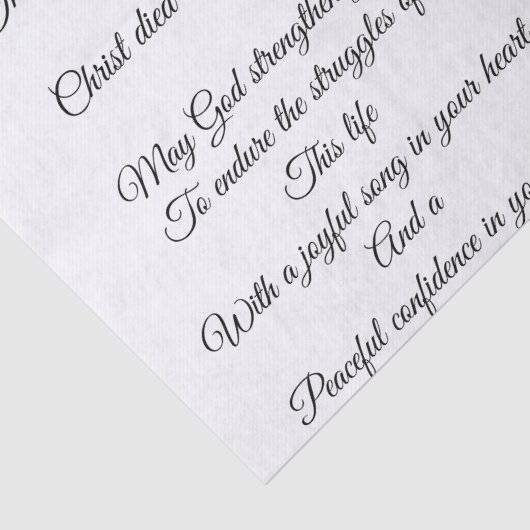 Christ died
May God strengthen
To endure the struggles of
This life
With a joyful song in your heart
And a
Peaceful confidence in